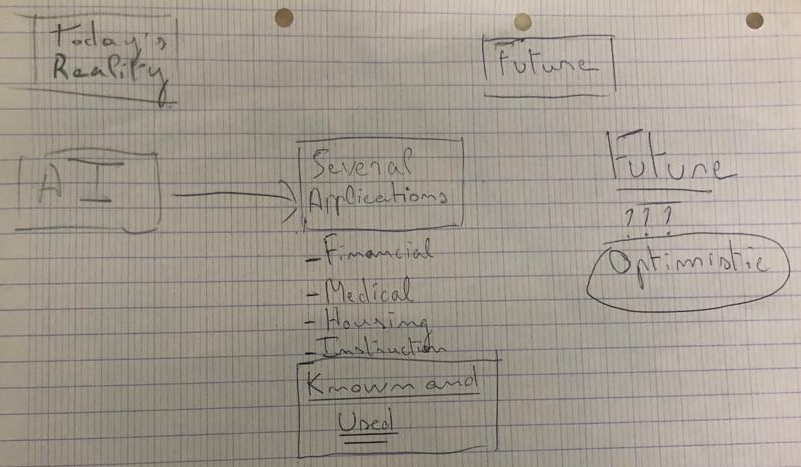 Today's
Reality
Future
AI
Several
Applications
- Financial
- Medical
- Housing
- Instruction
Known and
Used
Future
???
Optimistic